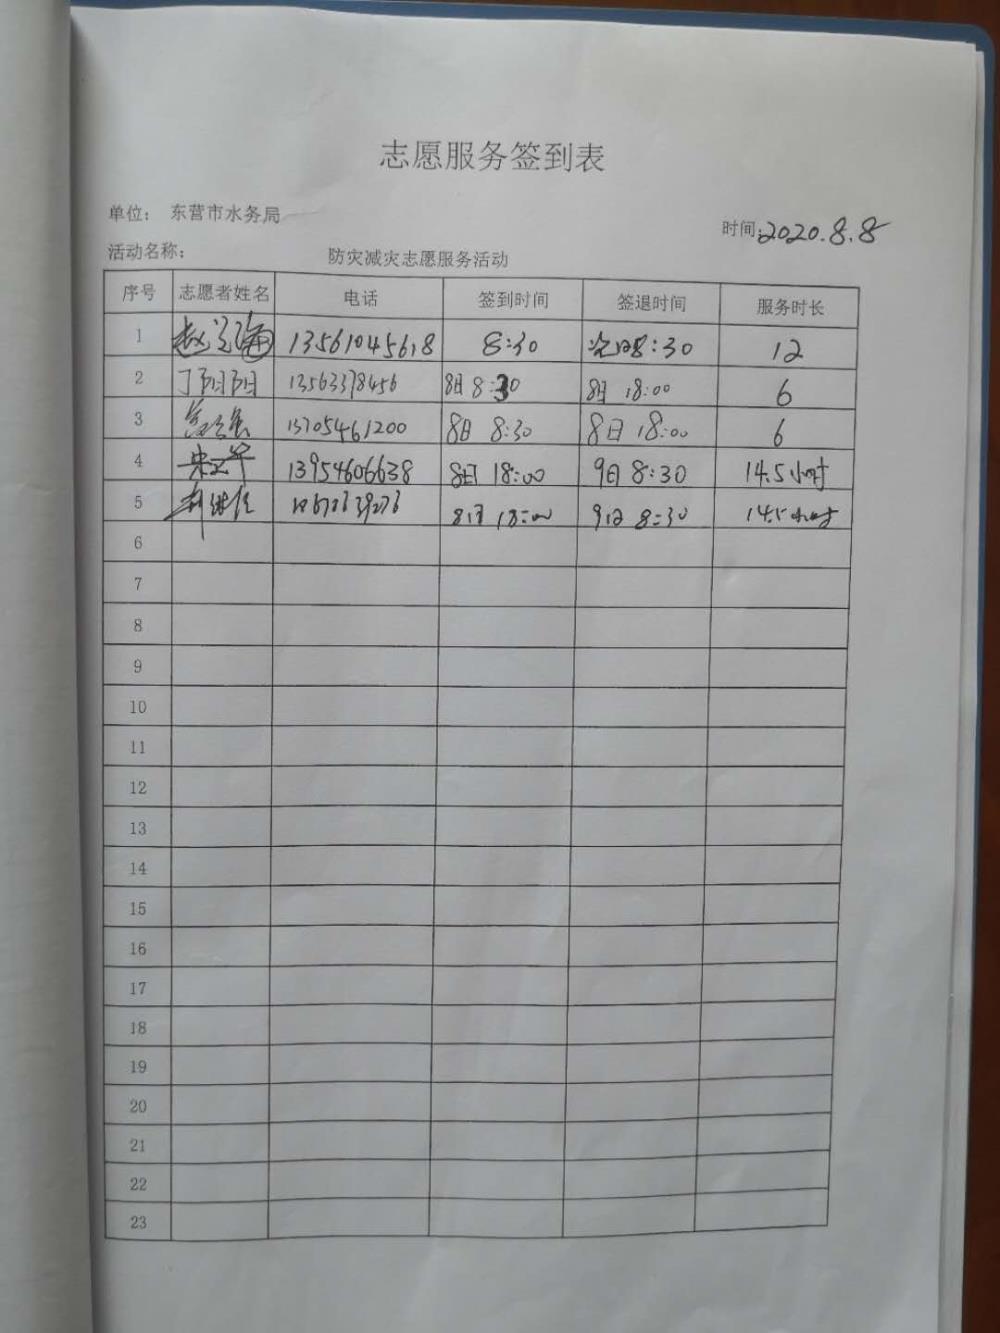 志愿服务签到表
单位： 东营市水务局
时间:2020.8.8
活动名称： 防灾减灾志愿服务活动
序号 志愿者姓名 电话 签到时间 签退时间 服务时长
1 13561045618 8:30 次日8:30 12
2 丁阳阳 13563378456 8日 8:30 8日 18:00 6
3 13705461200 8日 8:30 8日 18:00 6
4 13954606638 8日 18:00 9日 8:30 14.5小时
5 8日 18:00 9日 8:30 14.5小时
6
7
8
9
10
11
12
13
14
15
16
17
18
19
20
21
22
23